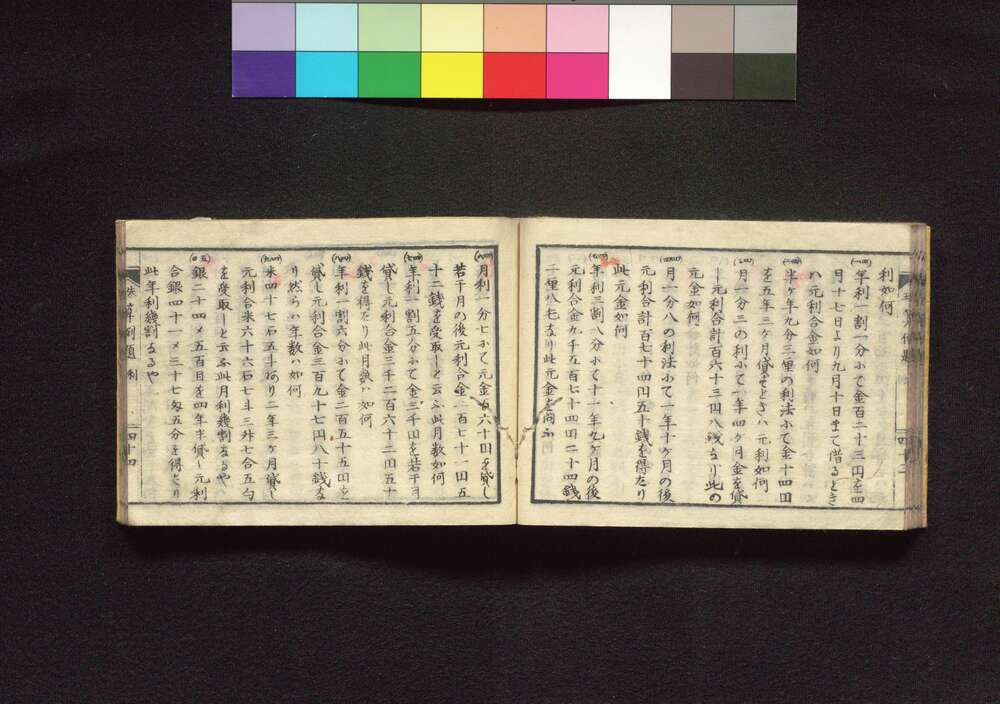 利如何
年利一割一分ふて金百二十三円を四
月十七日より九月十日まて借るとき
ハ元利合金如何
半ヶ年九分三厘の利法ふて金十四円
を五年三ヶ月貸すときハ元利如何
月一分三の利ふて一年四ヶ月金を貸
し元利合計百六十三円八銭なり此の
元金如何
月一分八の利法ふて一年十ヶ月の後
元利合計百七十四円五十銭を得たり
此元金如何
年利三割八分ふて十一年九ヶ月の後
元利合金九千五百七十四円二十四銭
二厘八毛なり此元金を問ふ
月利一分七ふて元金百六十円を貸し
若干月の後元利合金二百七十一円五
十二銭を受取しと云ふ此月数如何
年利一割五分ふて金三千円を若干月
貸し元利合金三千二百六十二円五十
銭を得たり此月数ハ如何
年利一割六分ふて金二百五十五円を
貸し元利合金三百九十七円八十銭な
り然らハ年数ハ如何
米四十七石五斗あり二年三ヶ月貸し
元利合米六十六石七斗三升七合五勺
を受取しと云ふ此月利幾割なるや
銀二十四〆五百目を四年半貸し元利
合銀四十一〆三十七匁五分を得たり
此年利幾割なるや
珠算例題 利 四十四